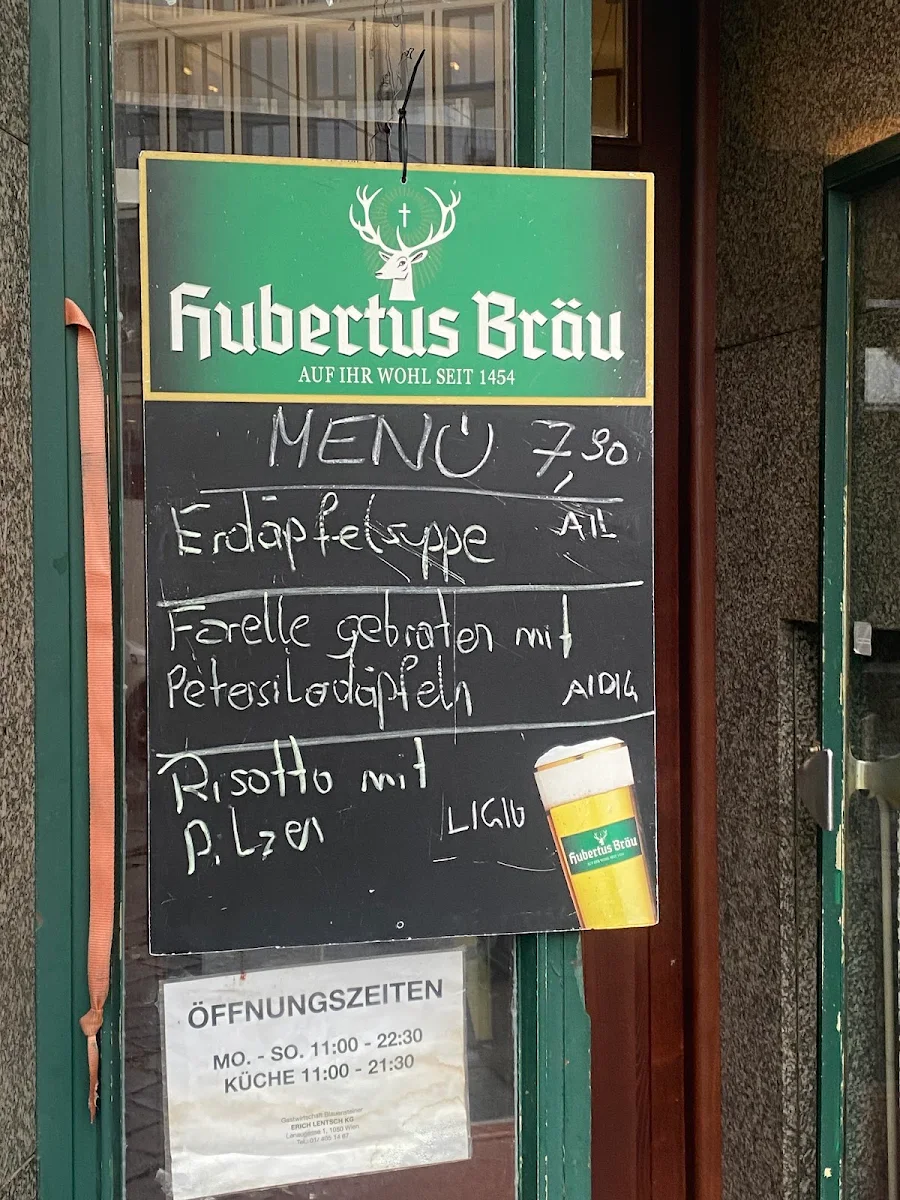 Hubertus Bräu
AUF IHR WOHL SEIT 1454
MENÜ 7,90
Erdäpfelsuppe A1L
Forelle gebraten mit
Petersilodäpfeln A1D1G
Risotto mit
Pilzen L1G1O
Hubertus Bräu
ÖFFNUNGSZEITEN
MO. - SO. 11:00 - 22:30
KÜCHE 11:00 - 21:30
Gastwirtschaft Blauensteiner
ERICH LENTSCH KG
Lenaugasse 1, 1080 Wien